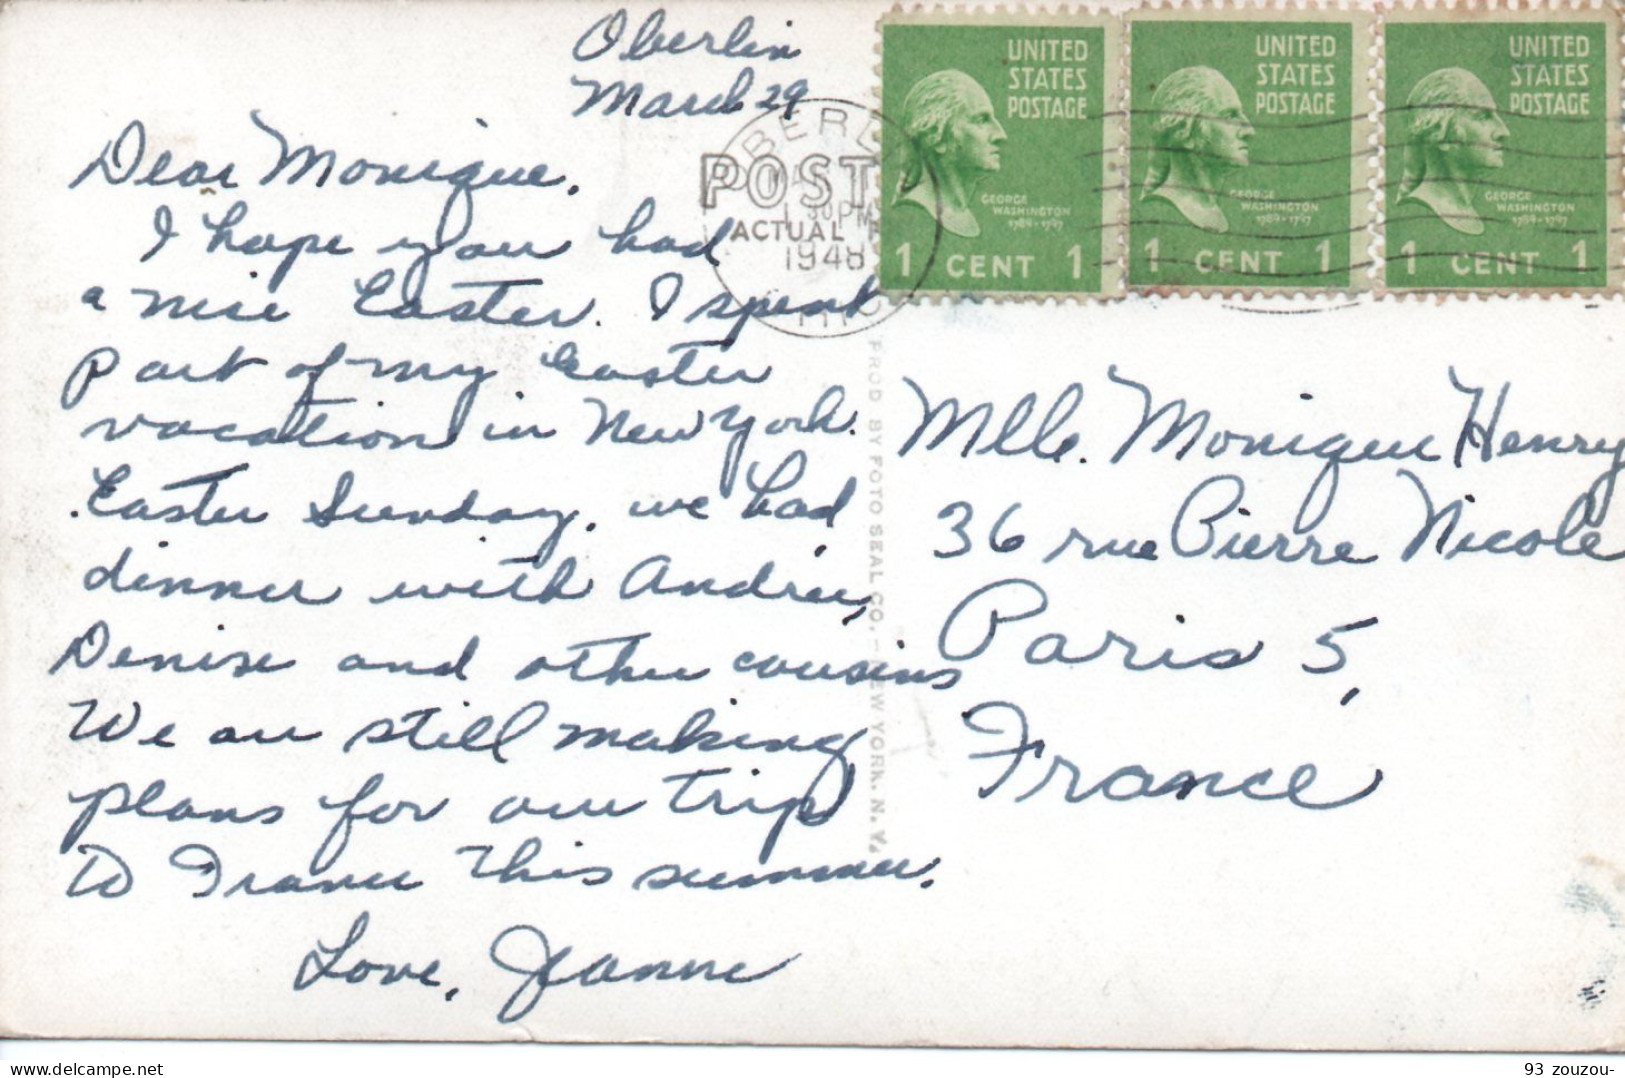 Oberlin
March 29
Dear Monique,
I hope you had
a nice Easter. I spent
part of my Easter
vacation in New York.
Easter Sunday, we had
dinner with Andrée,
Denise and other cousins
We are still making
plans for our trip
to France this summer.
Love, Jeanne
UNITED
STATES
POSTAGE
GEORGE
WASHINGTON
1789-1797
1 CENT 1
UNITED
STATES
POSTAGE
GEORGE
WASHINGTON
1789-1797
1 CENT 1
UNITED
STATES
POSTAGE
GEORGE
WASHINGTON
1789-1797
1 CENT 1
OBERL
1 30 PM
1948
POST
ACTUAL
PROD BY FOTO SEAL CO. - NEW YORK, N. Y.
Mlle. Monique Henry
36 rue Pierre Nicole
Paris 5,
France
93 zouzou-